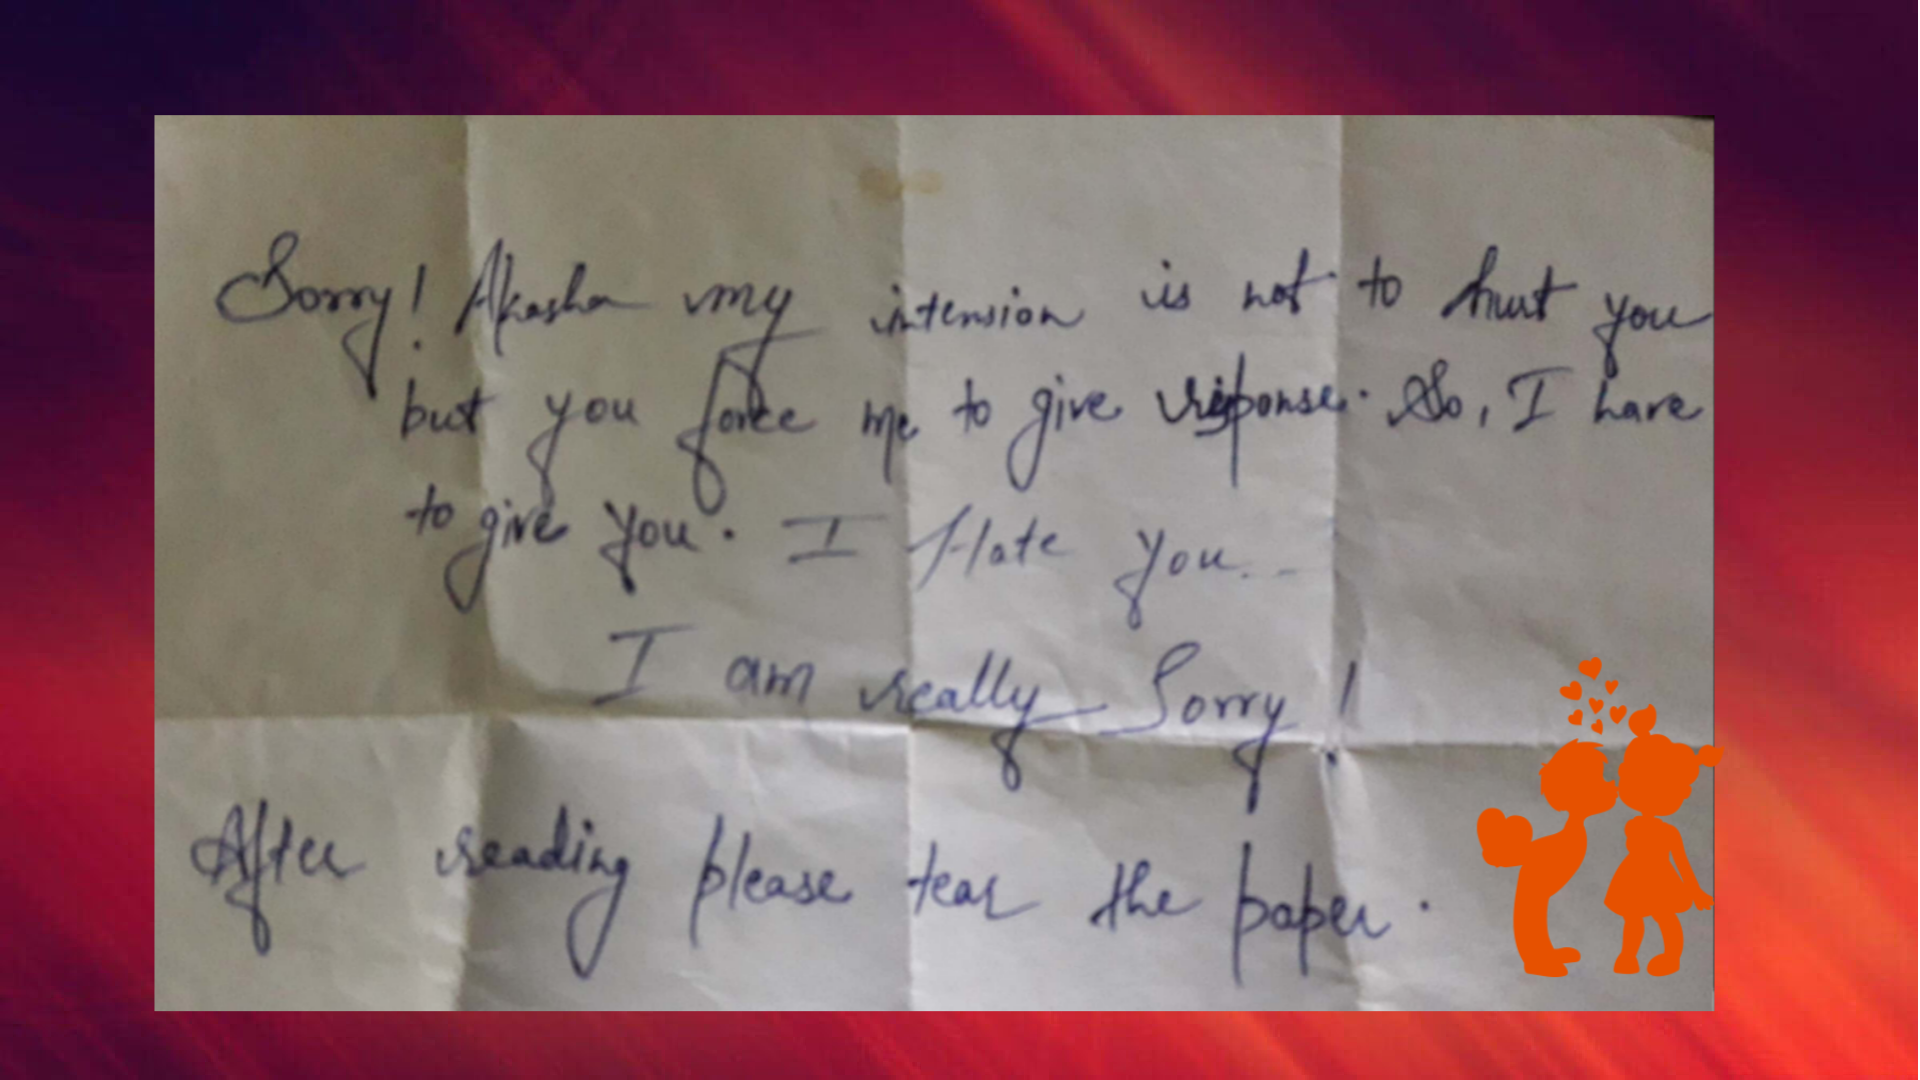 Sorry! Akasha my intension is not to hurt you
but you force me to give response. So, I have
to give you. I Hate you...
I am really Sorry!
After reading please tear the paper.